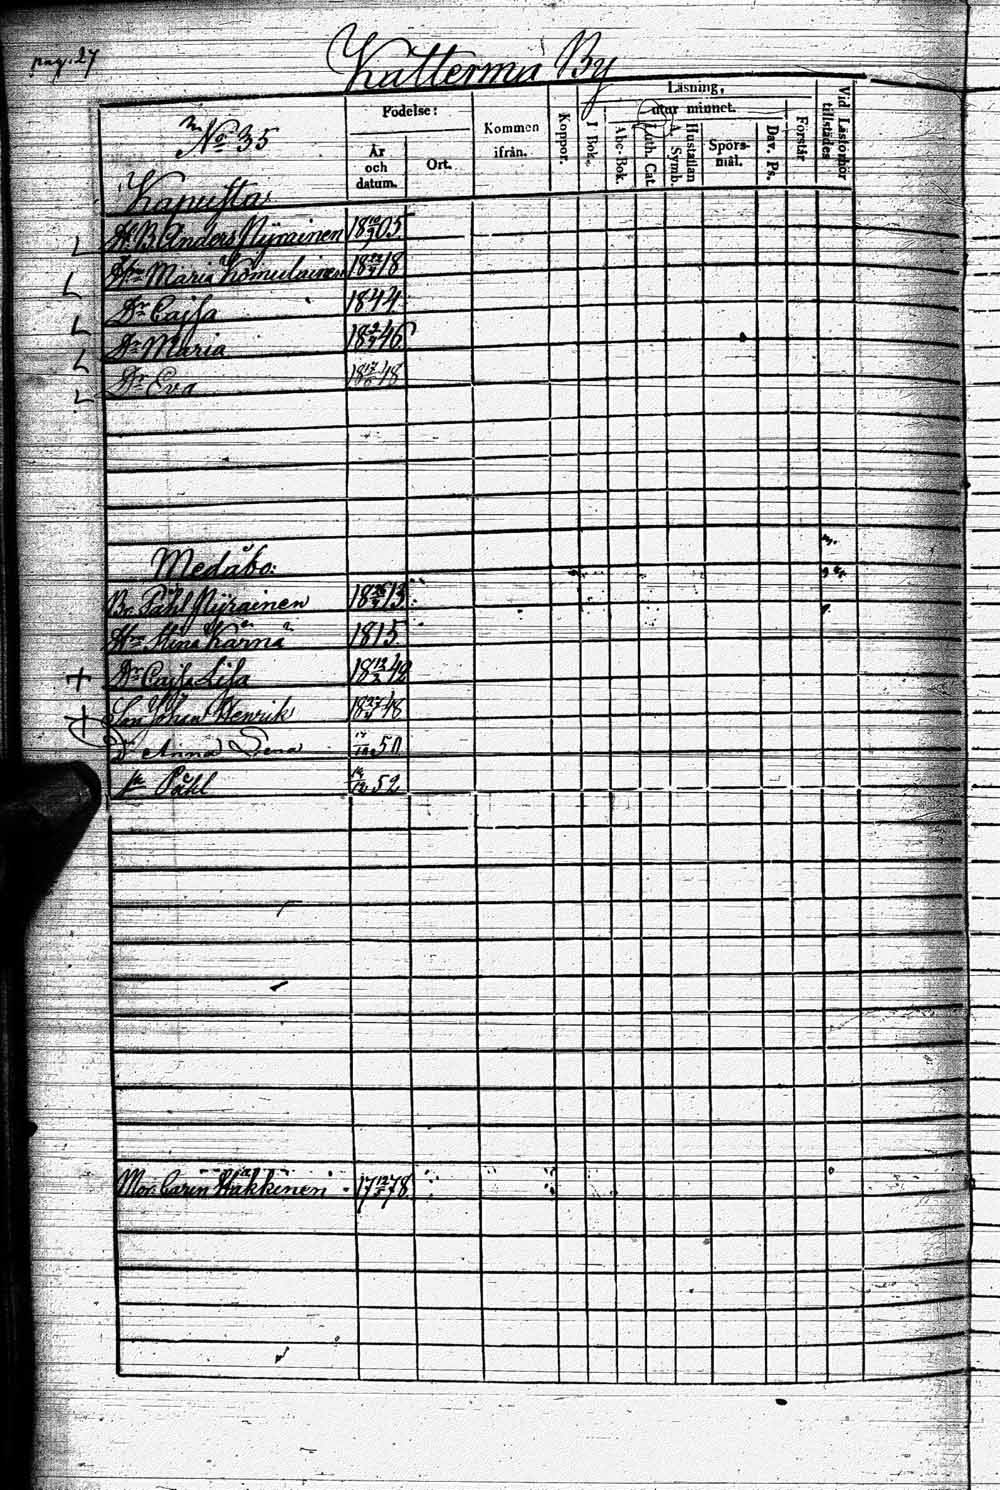 pag. 27
Katterma By
No 35
Födelse:
År och datum.
Ort.
Kommen ifrån.
Koppor.
Läsning,
utur minnet.
I Bok.
Abc-Bok.
Luth. Cat.
A. Symb.
Hustaflan
Spörsmål.
Dav. Ps.
Förstår
Vid Läsförhör tillstädes
Kapusta
Anders Nyrainen 05
Maria Komulainen 18
Dr Cajsa 1844
Dr Maria 46
Dr Eva 48
Medåbo:
Br. Påhl Nyrainen 13
Stina Kärnä 1815
Dr Cajsa Lisa
Son Johan Henrik 48
D Anna Lena 50
Påhl 52
Mor Carin Häkkinen 78